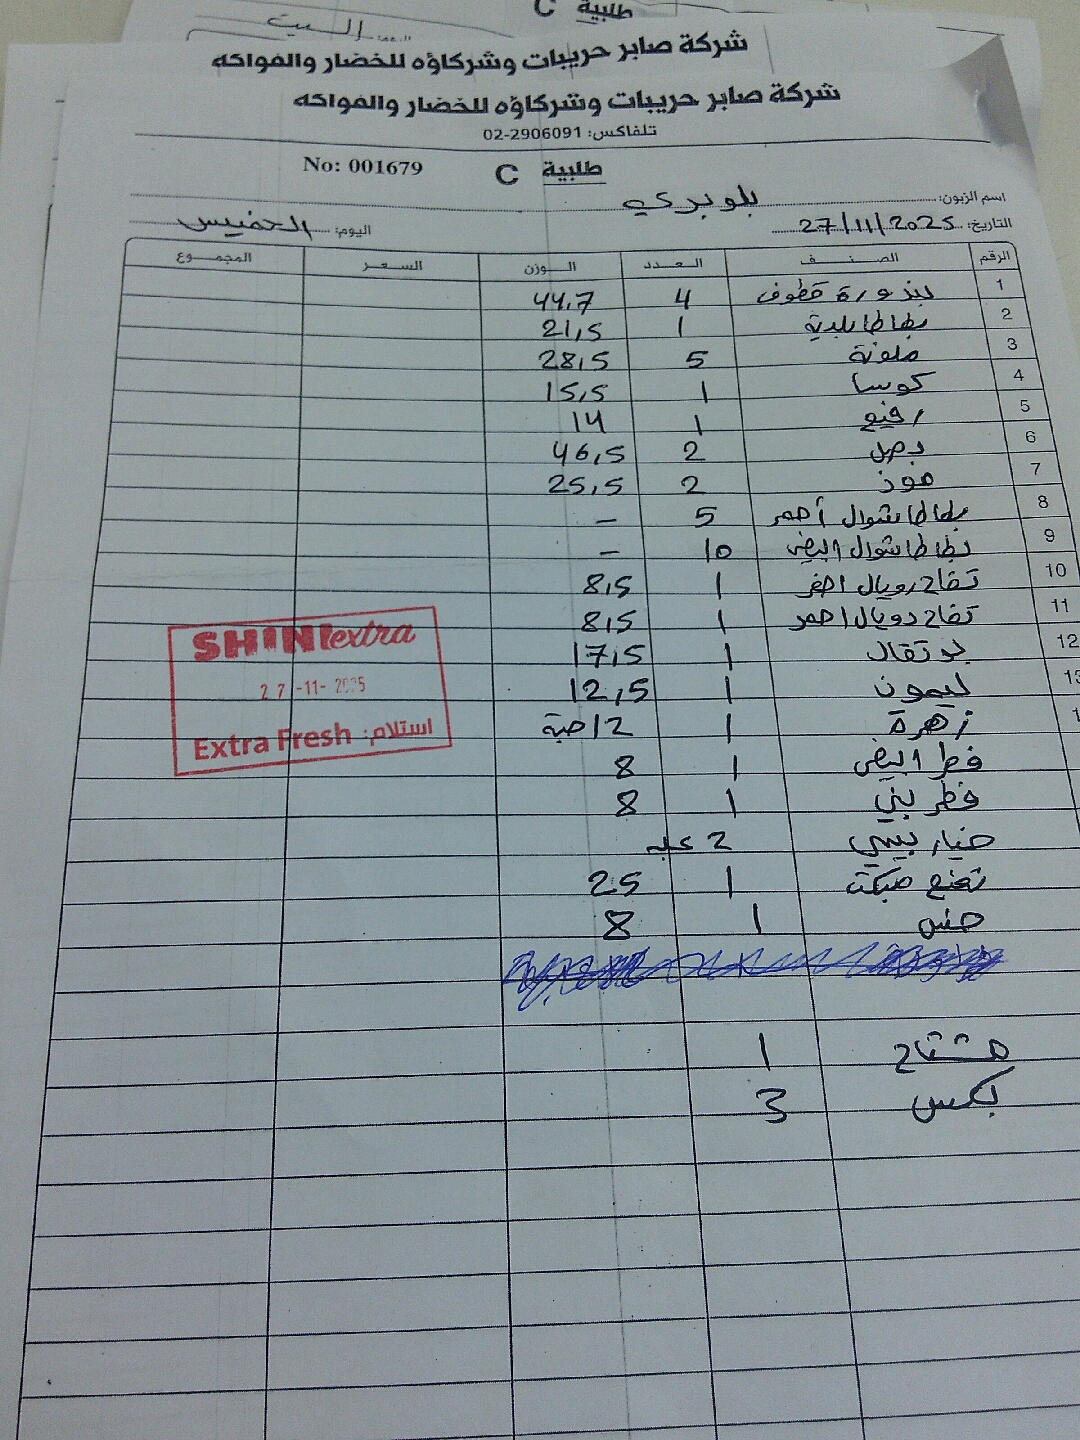 طلبية C
البيت
شركة صابر حريبات وشركاؤه للخضار والفواكه
شركة صابر حريبات وشركاؤه للخضار والفواكه
تلفاكس: 02-2906091
No: 001679
طلبية C
اسم الزبون: بلوبري
التاريخ: 27/11/2025 اليوم: الخميس
الرقم الصنف العدد الوزن السعر المجموع
1 بندورة قطوف 4 44,7
2 بطاطا بلدية 1 21,5
3 ملونة 5 28,5
4 كوسا 1 15,5
5 رفيع 1 14
6 بصل 2 46,5
7 موز 2 25,5
8 بطاطا شوال أحمر 5 –
9 بطاطا شوال ابيض 10 –
10 تفاح رويال اصفر 1 8,5
11 تفاح رويال احمر 1 8,5
12 برتقال 1 17,5
13 ليمون 1 12,5
زهرة 1 12 حبة
فطر ابيض 1 8
فطر بني 1 8
خيار بيبي 2 علبه
نعنع 1 25
خس 1 8
مشتاح 1
بكس 3
SHINI extra
27-11-2025
استلام: Extra Fresh